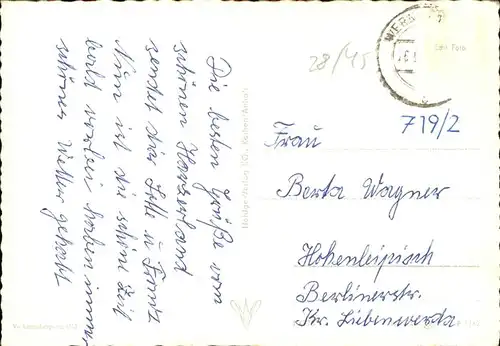 Die besten Grüße vom
schönen Harzerland
sendet dir Lotte u. Frantz
Nun ist die schöne Zeit
bald vorbei haben immer
schönes Wetter gehabt
28/45
719/2
Frau
Berta Wagner
Hohenleipisch
Berlinerstr.
Kr. Liebenwerda